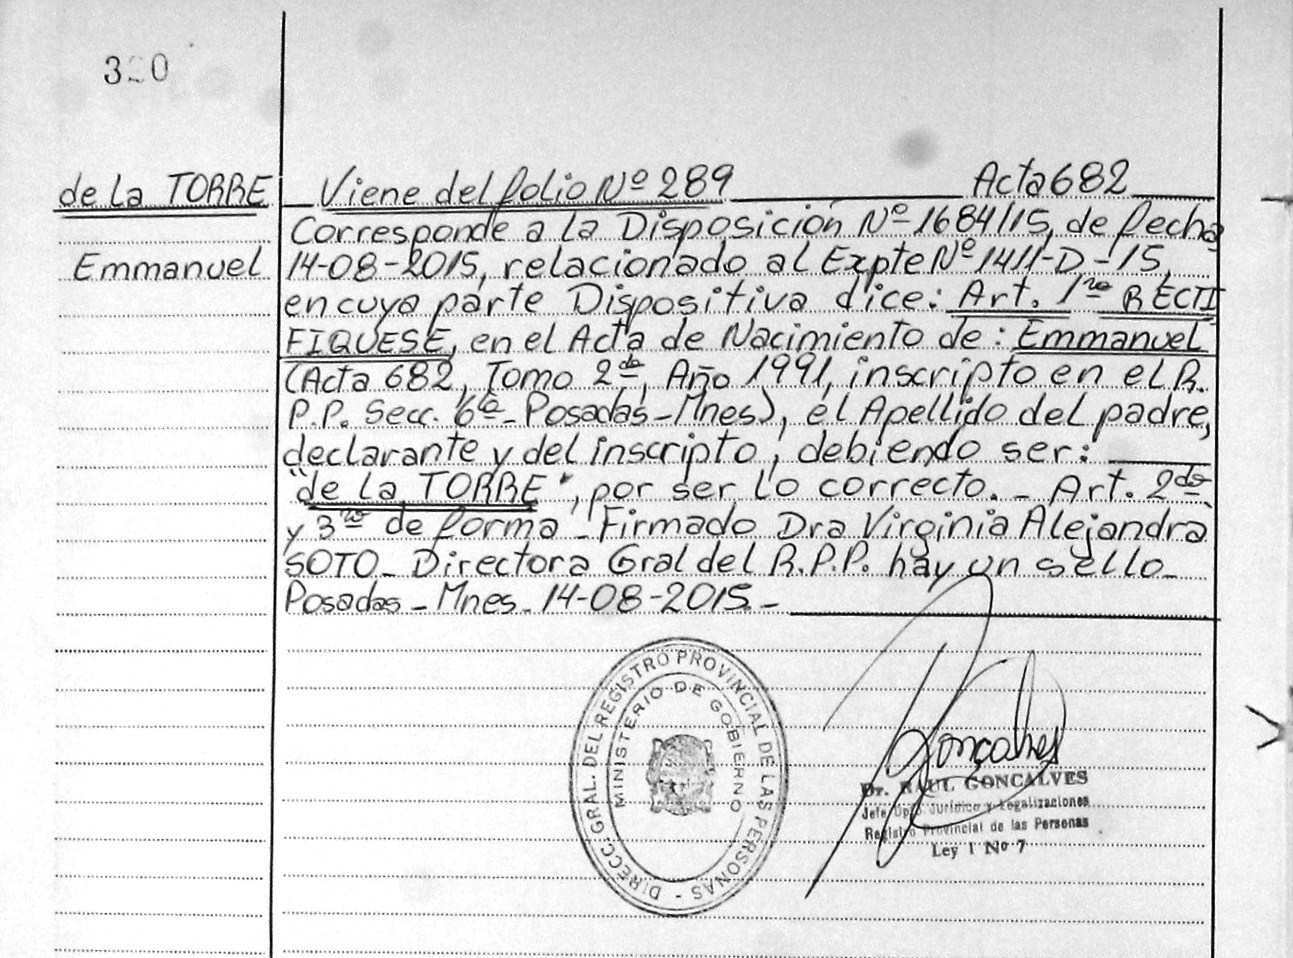 320
de la TORRE
Emmanuel
Viene del folio Nº 289 Acta 682
Corresponde a la Disposición Nº 1684/15, de fecha
14-08-2015, relacionado al Expte Nº 1411-D-15,
en cuya parte Dispositiva dice: Art. 1ro RECTI
FIQUESE, en el Acta de Nacimiento de: Emmanuel
(Acta 682, Tomo 2do, Año 1991, inscripto en el R.
P.P. Secc. 6ta- Posadas-Mnes), el Apellido del padre,
declarante y del inscripto, debiendo ser:
"de la TORRE", por ser lo correcto.- Art. 2do
y 3ro de forma - Firmado Dra Virginia Alejandra
SOTO- Directora Gral del R.P.P. hay un sello-
Posadas-Mnes. 14-08-2015.-
DIRECC. GRAL. DEL REGISTRO PROVINCIAL DE LAS PERSONAS -
MINISTERIO DE GOBIERNO
Goncalves
Dr. RAUL GONCALVES
Jefe Dpto. Jurídico y Legalizaciones
Registro Provincial de las Personas
Ley I Nº 7